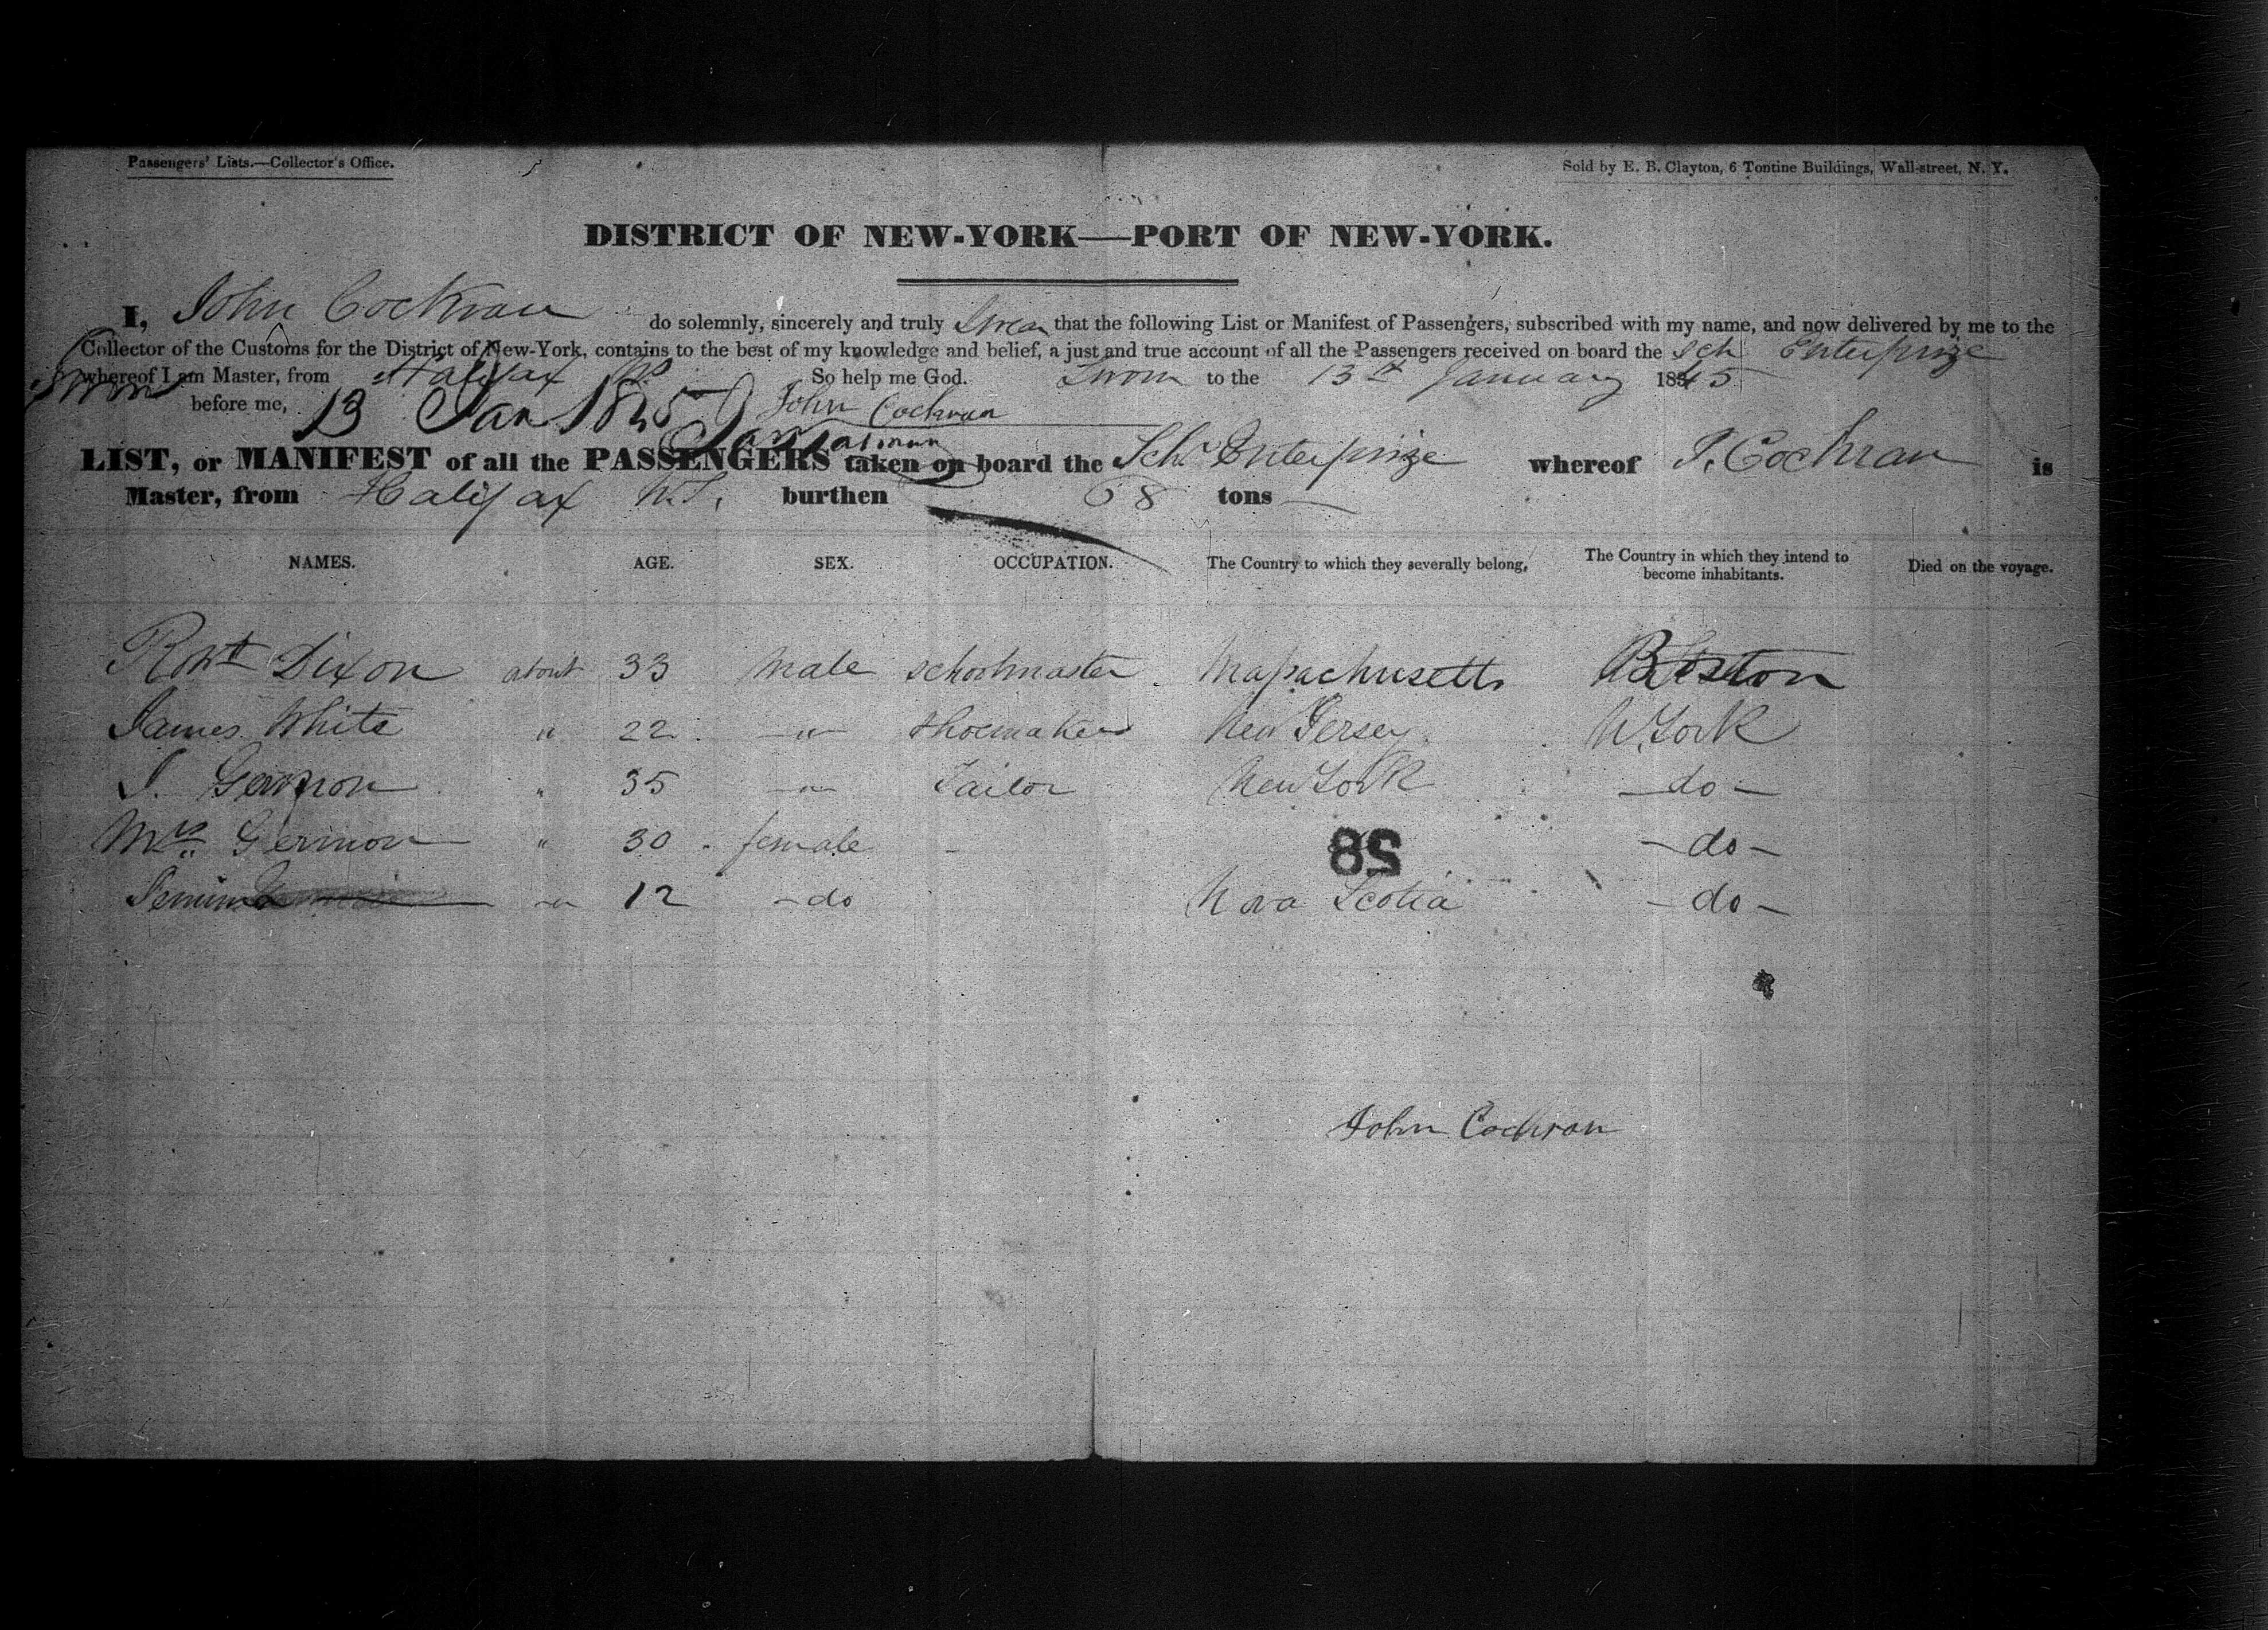 Passengers' Lists.—Collector's Office.
Sold by E. B. Clayton, 6 Tontine Buildings, Wall-street, N. Y.
DISTRICT OF NEW-YORK—PORT OF NEW-YORK.
I, John Cochran do solemnly, sincerely and truly Swear that the following List or Manifest of Passengers, subscribed with my name, and now delivered by me to the
Collector of the Customs for the District of New-York, contains to the best of my knowledge and belief, a just and true account of all the Passengers received on board the Sch Enterprize
whereof I am Master, from Halifax NS So help me God. Sworn to the 13th January 1845
Sworn before me, 13 Jan 1845 John Cochran
LIST, or MANIFEST of all the PASSENGERS taken on board the Schr Enterprize whereof J. Cochran is
Master, from Halifax N.S. burthen 68 tons
NAMES. AGE. SEX. OCCUPATION. The Country to which they severally belong, The Country in which they intend to become inhabitants. Died on the voyage.
Robt Dixon about 33 Male Schoolmaster Massachusetts Boston
James White " 22 " Shoemaker New Jersey N. York
J. Gennon " 35 " Tailor New York do
Mrs. Gennon " 30 female - do
58
" 12 do Nova Scotia do
John Cochran